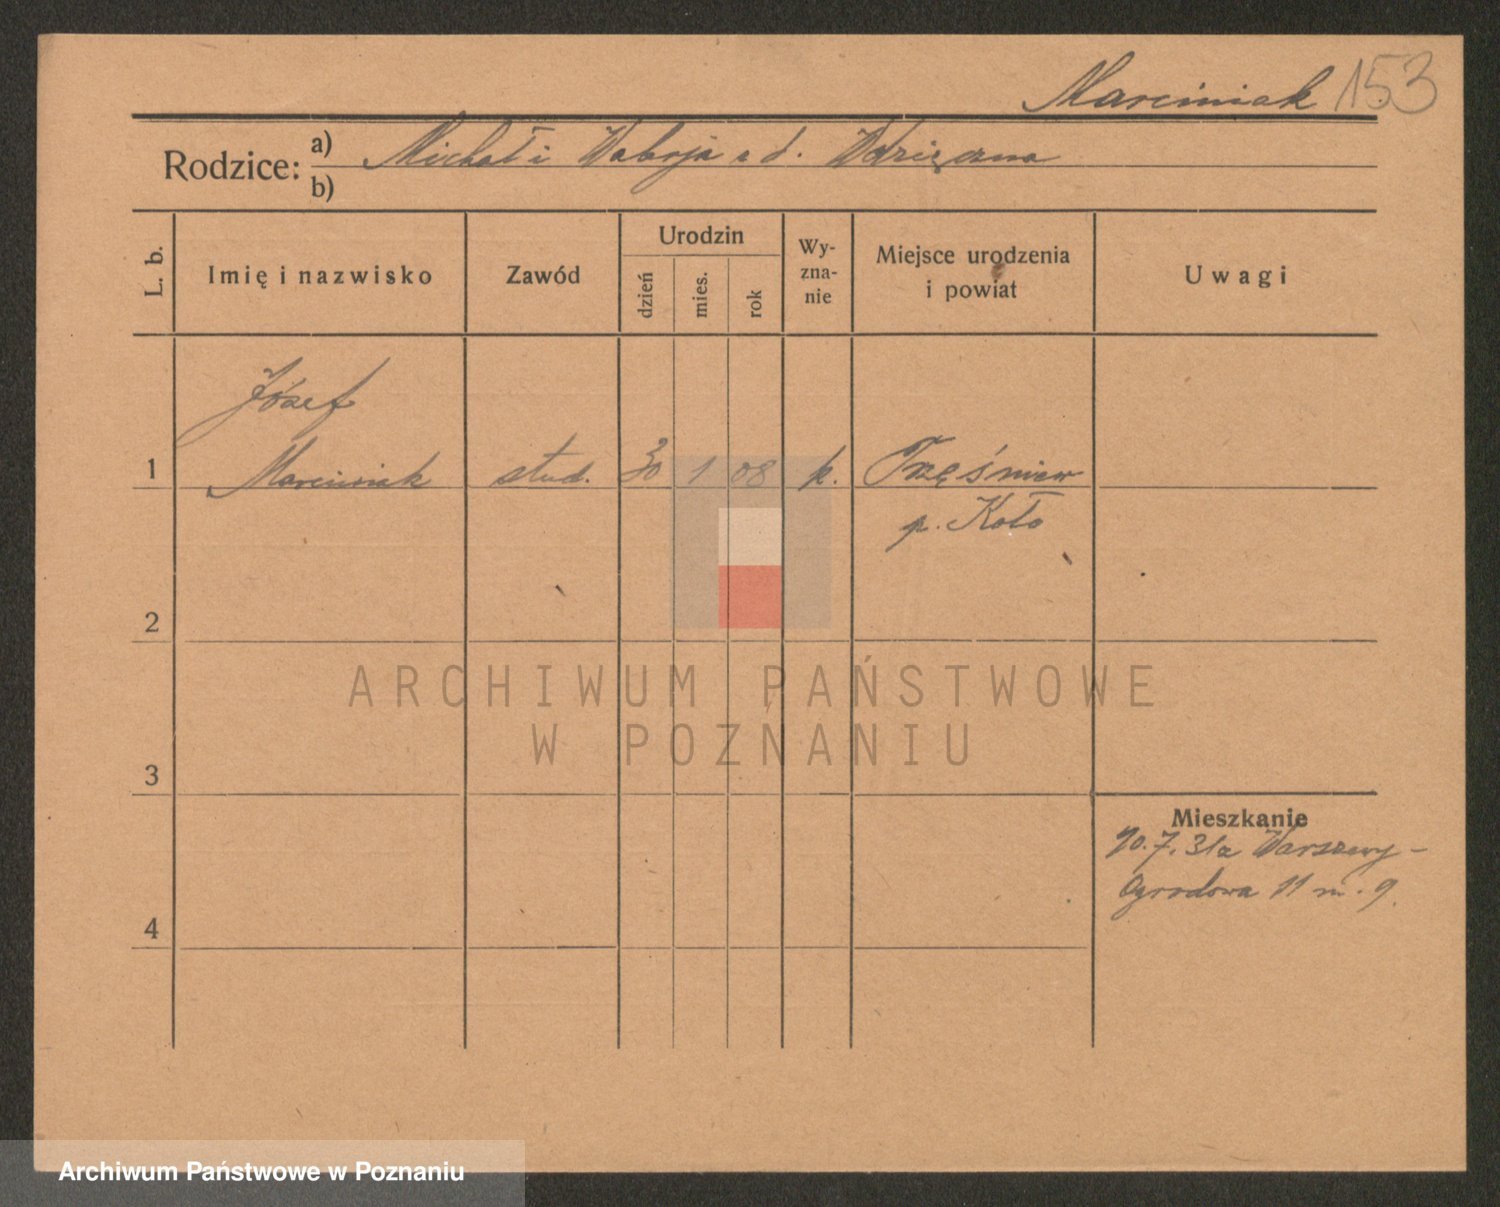 Marciniak 153
Rodzice: a) Michał i
b)
L. b.
Imię i nazwisko
Zawód
Urodzin
dzień
mies.
rok
Wy-
zna-
nie
Miejsce urodzenia
i powiat
Uwagi
Józef
1 Marciniak stud. 30 1 08 k. Trześniew
p. Koło
2
ARCHIWUM PAŃSTWOWE
W POZNANIU
3
Mieszkanie
10.7.31 z Warszawy -
Ogrodowa 11 m. 9.
4
Archiwum Państwowe w Poznaniu